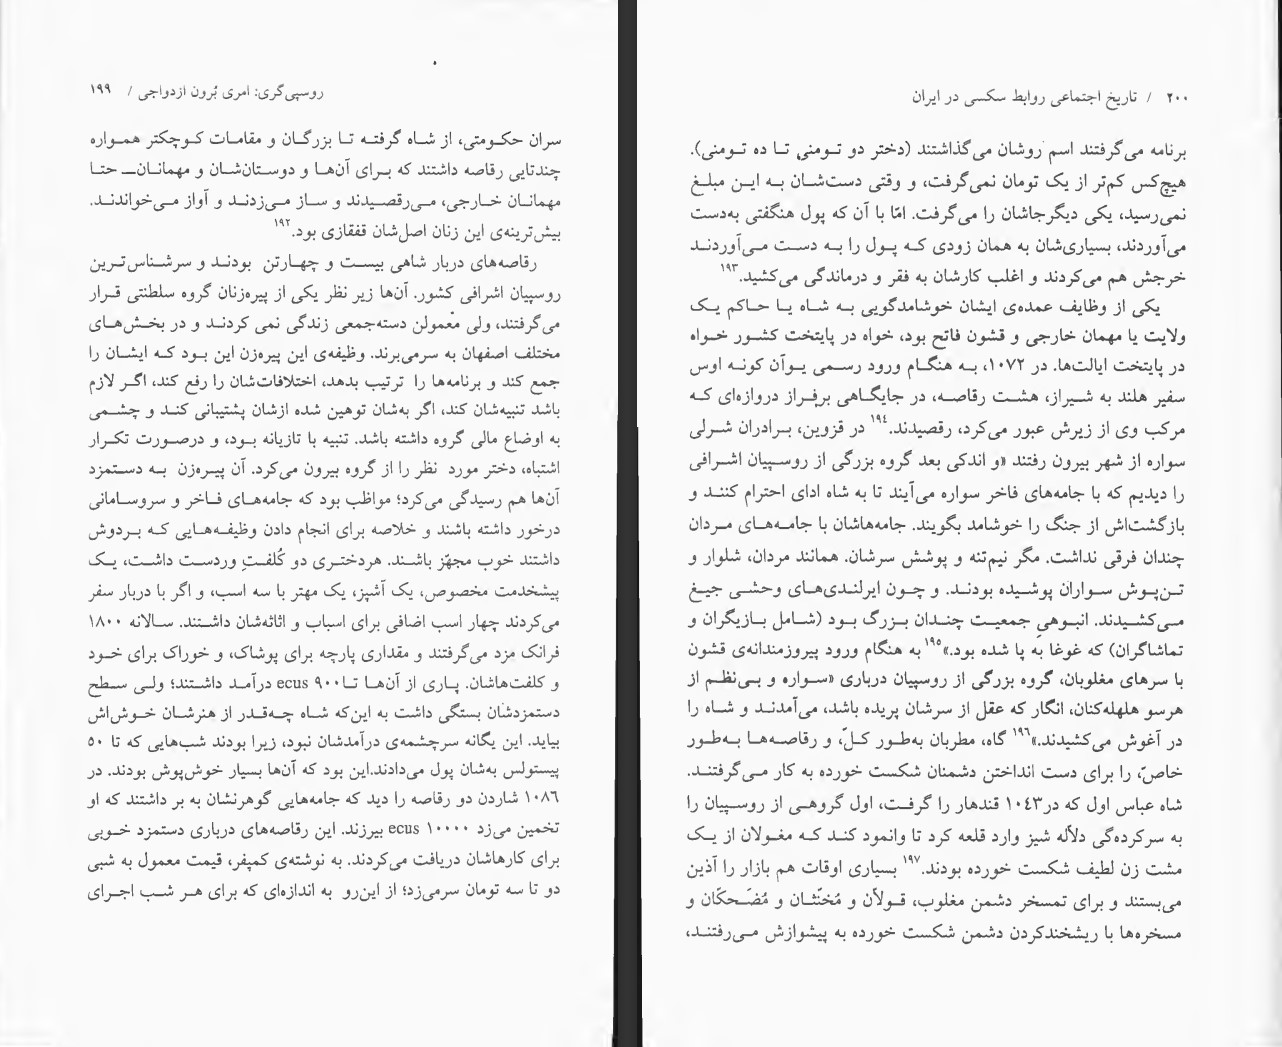 روسپی‌گری: امری بُرون ازدواجی / ۱۹۹
سران حکومتی، از شاه گرفته تا بزرگان و مقامات کوچکتر همواره
چندتایی رقاصه داشتند که برای آن‌ها و دوستان‌شان و مهمانان— حتا
مهمانان خارجی، می‌رقصیدند و ساز می‌زدند و آواز می‌خواندند.
بیش‌ترینه‌ی این زنان اصل‌شان قفقازی بود.۱۹۲
رقاصه‌های دربار شاهی بیست و چهارتن بودند و سرشناس‌ترین
روسپیان اشرافی کشور. آن‌ها زیر نظر یکی از پیره‌زنان گروه سلطنتی قرار
می‌گرفتند، ولی معمولن دسته‌جمعی زندگی نمی کردند و در بخش‌های
مختلف اصفهان به سرمی‌برند. وظیفه‌ی این پیره‌زن این بود که ایشان را
جمع کند و برنامه‌ها را ترتیب بدهد، اختلافات‌شان را رفع کند، اگر لازم
باشد تنبیه‌شان کند، اگر به‌شان توهین شده ازشان پشتیبانی کند و چشمی
به اوضاع مالی گروه داشته باشد. تنبیه با تازیانه بود، و درصورت تکرار
اشتباه، دختر مورد نظر را از گروه بیرون می‌کرد. آن پیره‌زن به دستمزد
آن‌ها هم رسیدگی می‌کرد؛ مواظب بود که جامه‌های فاخر و سروسامانی
درخور داشته باشند و خلاصه برای انجام دادن وظیفه‌هایی که بردوش
داشتند خوب مجهّز باشند. هردختری دو کُلفتِ وردست داشت، یک
پیشخدمت مخصوص، یک آشپز، یک مهتر با سه اسب، و اگر با دربار سفر
می‌کردند چهار اسب اضافی برای اسباب و اثاثه‌شان داشتند. سالانه ۱۸۰۰
فرانک مزد می‌گرفتند و مقداری پارچه برای پوشاک، و خوراک برای خود
و کلفت‌هاشان. پاری از آن‌ها تا۹۰۰ ecus درآمد داشتند؛ ولی سطح
دستمزدشان بستگی داشت به این‌که شاه چه‌قدر از هنرشان خوش‌اش
بیاید. این یگانه سرچشمه‌ی درآمدشان نبود، زیرا بودند شب‌هایی که تا ۵۰
پیستولس به‌شان پول می‌دادند.این بود که آن‌ها بسیار خوش‌پوش بودند. در
۱۰۸۶ شاردن دو رقاصه را دید که جامه‌هایی گوهرنشان به بر داشتند که او
تخمین می‌زد ۱۰۰۰۰ ecus بیرزند. این رقاصه‌های درباری دستمزد خوبی
برای کارهاشان دریافت می‌کردند. به نوشته‌ی کمپفر، قیمت معمول به شبی
دو تا سه تومان سرمی‌زد؛ از این‌رو به اندازه‌ای که برای هر شب اجرای
۲۰۰ / تاریخ اجتماعی روابط سکسی در ایران
برنامه می‌گرفتند اسم روشان می‌گذاشتند (دختر دو تومنی تا ده تومنی).
هیچ‌کس کم‌تر از یک تومان نمی‌گرفت، و وقتی دست‌شان به این مبلغ
نمی‌رسید، یکی دیگرجاشان را می‌گرفت. امّا با آن که پول هنگفتی به‌دست
می‌آوردند، بسیاری‌شان به همان زودی که پول را به دست می‌آوردند
خرجش هم می‌کردند و اغلب کارشان به فقر و درماندگی می‌کشید.۱۹۳
یکی از وظایف عمده‌ی ایشان خوشامدگویی به شاه یا حاکم یک
ولایت یا مهمان خارجی و قشون فاتح بود، خواه در پایتخت کشور خواه
در پایتخت ایالت‌ها. در ۱۰۷۲، به هنگام ورود رسمی یوآن کونه اوس
سفیر هلند به شیراز، هشت رقاصه، در جایگاهی برفراز دروازه‌ای که
مرکب وی از زیرش عبور می‌کرد، رقصیدند.۱۹٤ در قزوین، برادران شرلی
سواره از شهر بیرون رفتند «و اندکی بعد گروه بزرگی از روسپیان اشرافی
را دیدیم که با جامه‌های فاخر سواره می‌آیند تا به شاه ادای احترام کنند و
بازگشت‌اش از جنگ را خوشامد بگویند. جامه‌هاشان با جامه‌های مردان
چندان فرقی نداشت. مگر نیم‌تنه و پوشش سرشان. همانند مردان، شلوار و
تن‌پوش سواران پوشیده بودند. و چون ایرلندی‌های وحشی جیغ
می‌کشیدند. انبوهیِ جمعیت چندان بزرگ بود (شامل بازیگران و
تماشاگران) که غوغا به پا شده بود.»۱۹۵ به هنگام ورود پیروزمندانه‌ی قشون
با سرهای مغلوبان، گروه بزرگی از روسپیان درباری «سواره و بی‌نظم از
هرسو هلهله‌کنان، انگار که عقل از سرشان پریده باشد، می‌آمدند و شاه را
در آغوش می‌کشیدند.»۱۹۶ گاه، مطربان به‌طور کلّ، و رقاصه‌ها به‌طور
خاصّ، را برای دست انداختن دشمنان شکست خورده به کار می‌گرفتند.
شاه عباس اول که در۱۰٤۳ قندهار را گرفت، اول گروهی از روسپیان را
به سرکرده‌گی دلّاله شیز وارد قلعه کرد تا وانمود کند که مغولان از یک
مشت زن لطیف شکست خورده بودند.۱۹۷ بسیاری اوقات هم بازار را آذین
می‌بستند و برای تمسخر دشمن مغلوب، قوّلان و مُخنّثان و مُضحکان و
مسخره‌ها با ریشخندکردن دشمن شکست خورده به پیشوازش می‌رفتند،